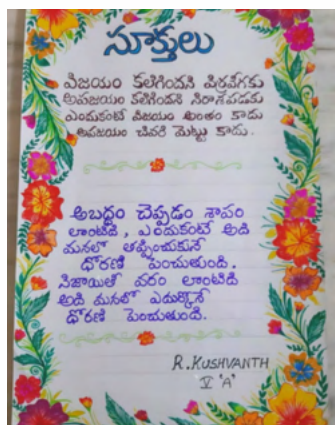 సూక్తులు
విజయం కలిగిందని విర్రవీగకు
అపజయం కలిగిందని నిరాశపడకు
ఎందుకంటే విజయం అంతం కాదు
అపజయం చివరి మెట్టు కాదు.
అబద్ధం చెప్పడం శాపం
లాంటిది, ఎందుకంటే అది
మనలో తప్పించుకునే
ధోరణి పెంచుతుంది.
నిజాయితీ వరం లాంటిది
అది మనలో ఎదుర్కొనే
ధోరణి పెంచుతుంది.
R.KUSHVANTH
V 'A'